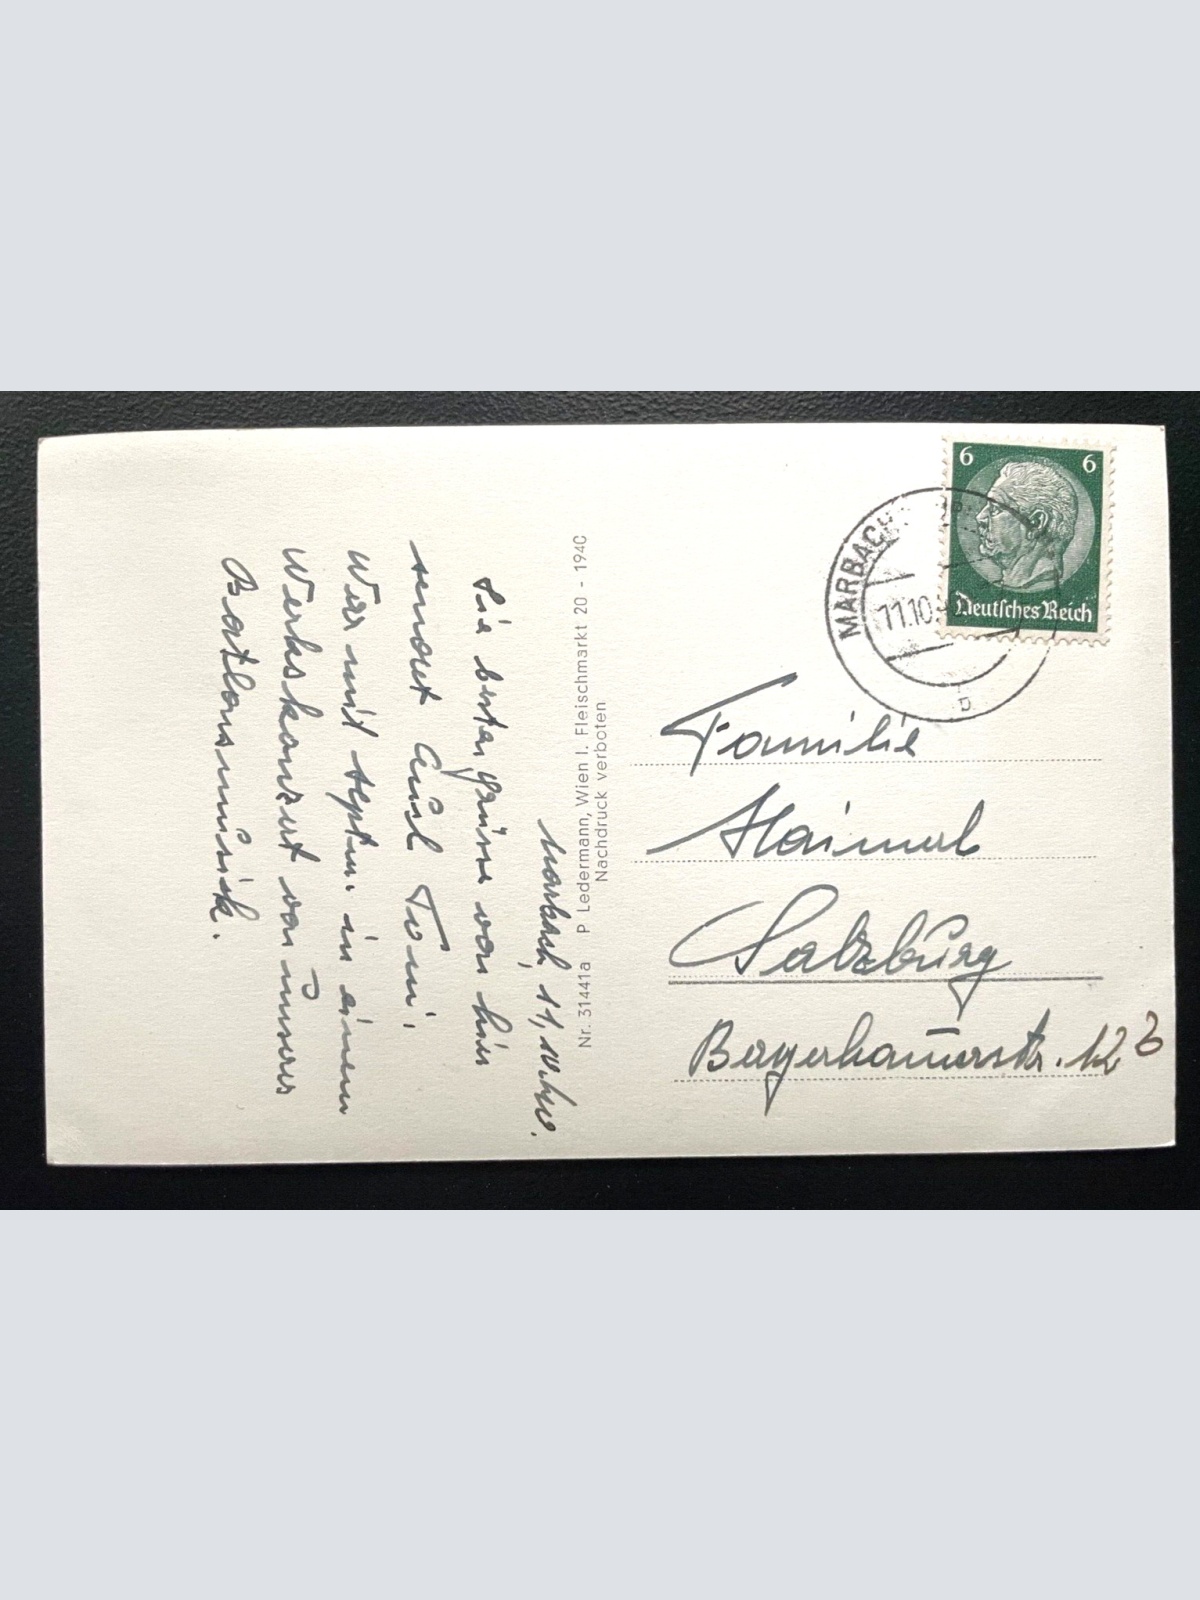 Marbach, 11.10.40.
Die besten Grüsse von hier
sendet Euch Toni.
War mit in einem
Werkskonzert von unserer
Baonsmusik.
Nr. 31441a P Ledermann, Wien I. Fleischmarkt 20 - 1940
Nachdruck verboten
6 6
Deutsches Reich
MARBACH
11.10.4
b
Familie
Haimerl
Salzburg
Bayerhamerstr. 12